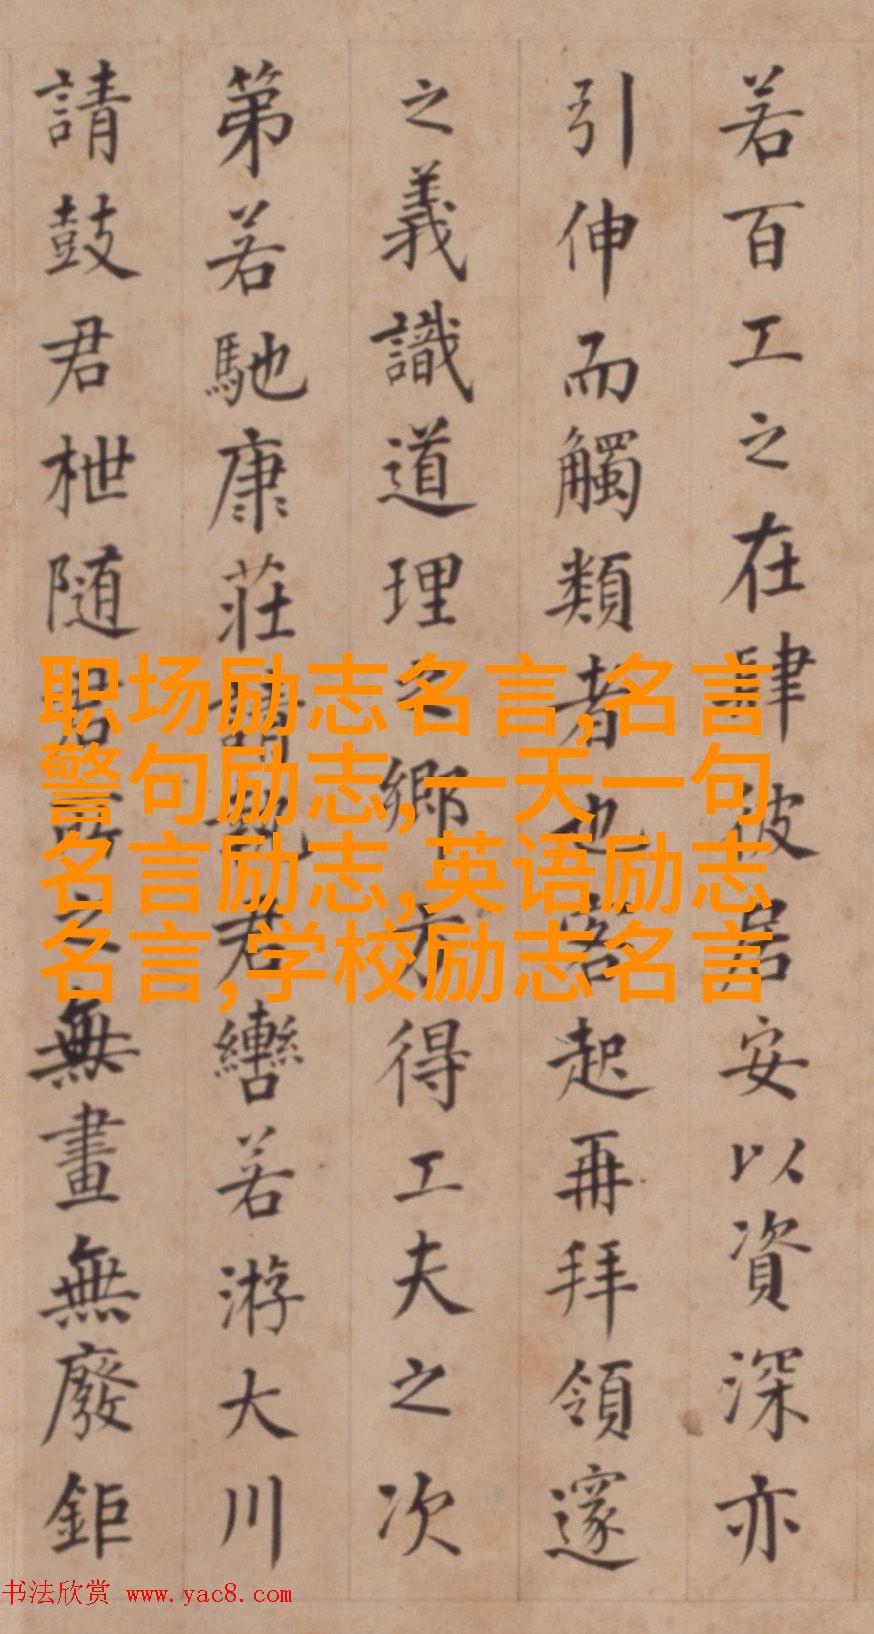 若百工之在肆彼居安以資深亦
引伸而觸類者也客起再拜領邃
之義識道理之鄉方得工夫之次
第若馳康莊請執君轡若游大川
請鼓君枻随君所之無畫無廢鉅
职场励志名言,名言
警句励志,一天一句
名言励志,英语励志
名言,学校励志名言
书法欣赏 www.yac8.com